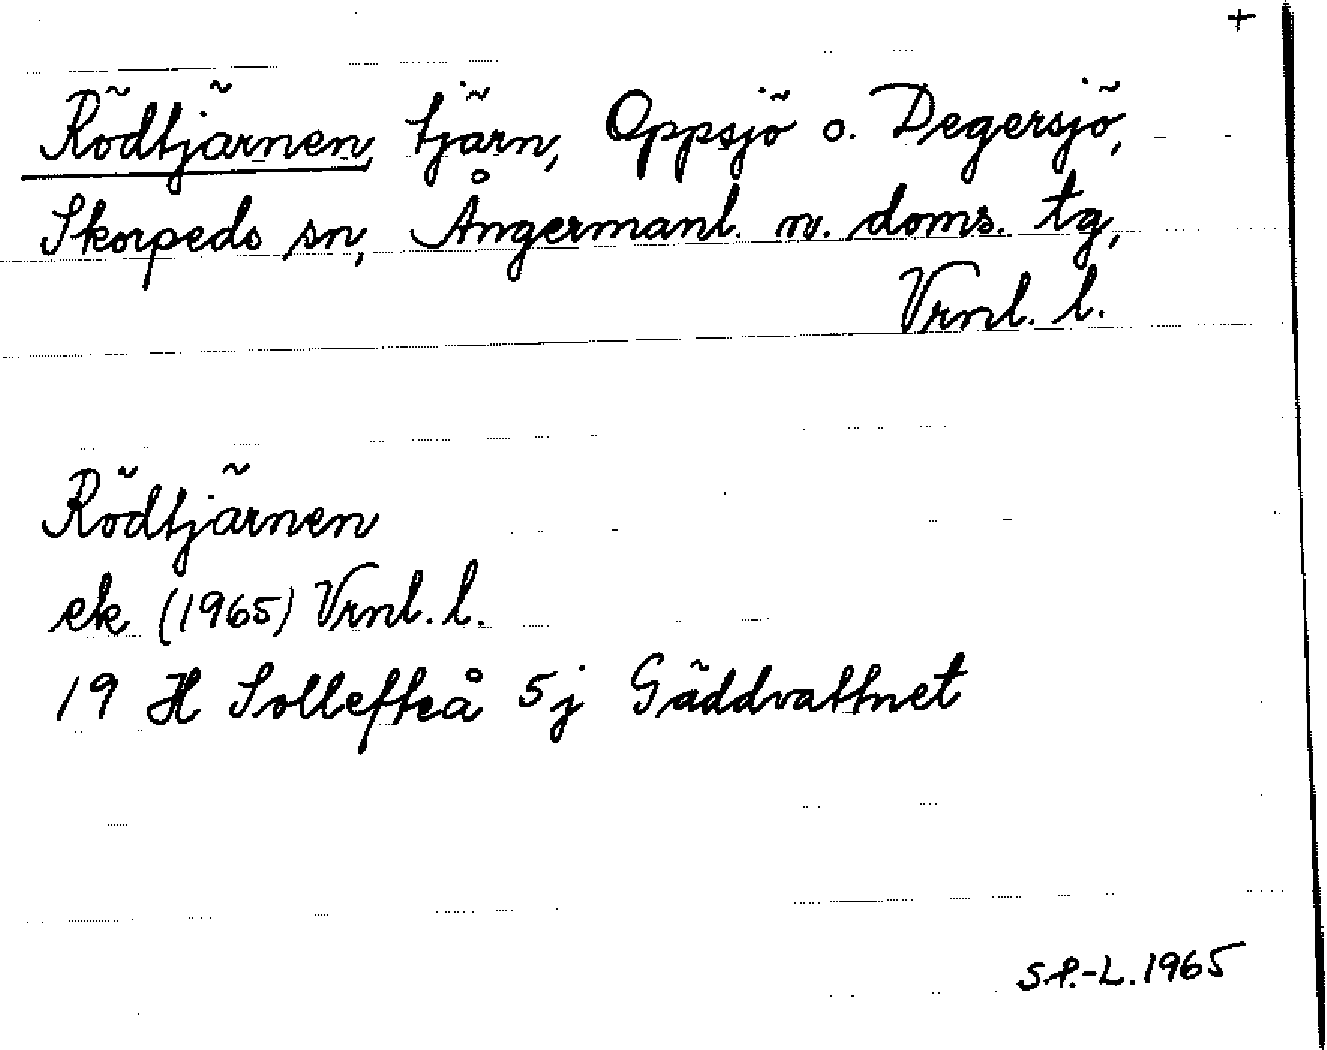 +
Rödtjärnen, tjärn, Oppsjö o. Degersjö,
Skorpeds sn, Ångermanl. n. doms. tg,
Vrnl. l.
Rödtjärnen
ek (1965) Vrnl. l.
19 H Sollefteå 5j Gäddvattnet
S.P.-L. 1965